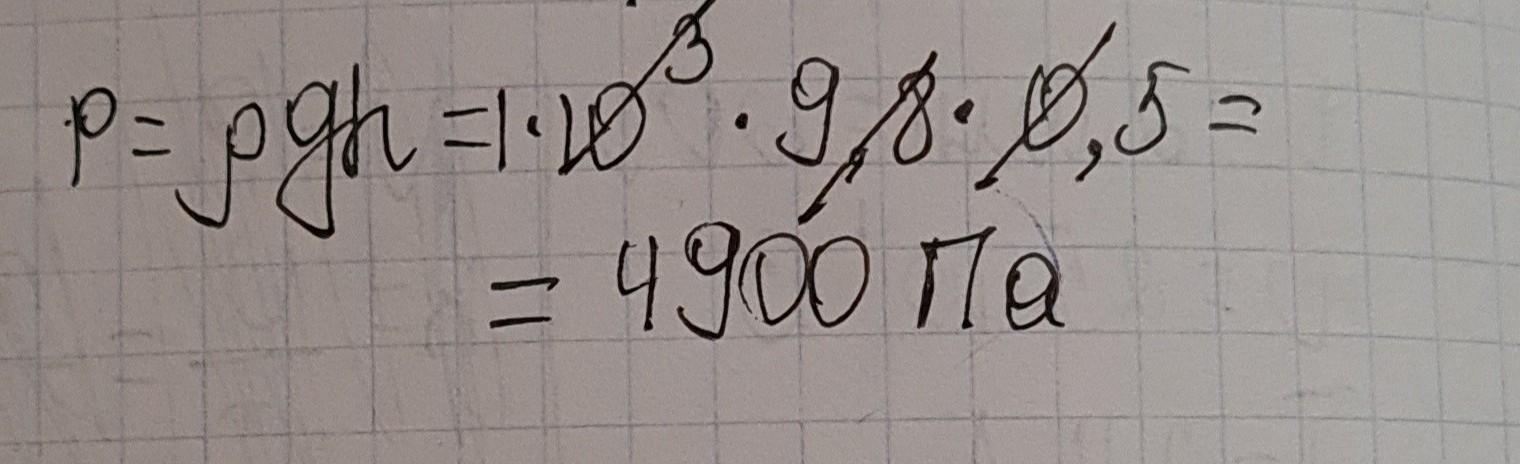 p = ρgh = 1 · 10³ · 9,8 · 0,5 =
= 4900 Па